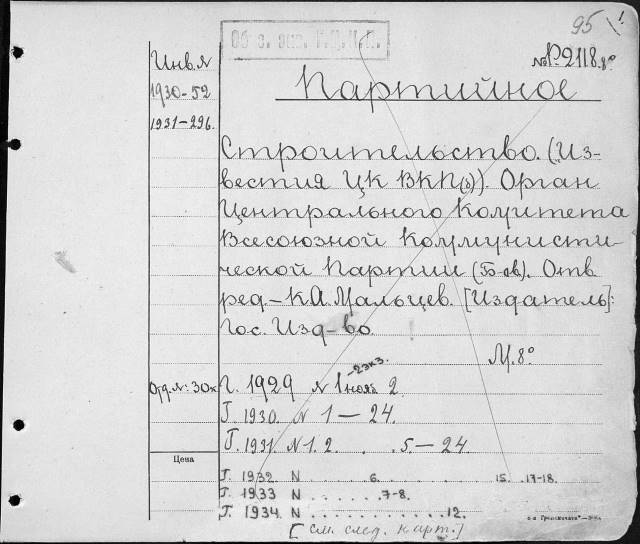 95
№ Р2118.8°
Инв. N
1930-52
1931-296.
Партийное
Строительство. (Из-
вестия ЦК ВКП(б)). Орган
Центрального Комитета
Всесоюзной Коммунисти-
ческой Партии (Б-ов). Отв.
ред. - К.А. Мальцев. [Издатель]:
Гос. Изд-во.
М. 8°
Г. 1929 N 1 нояб -2 экз. 2
Г. 1930. N 1 — 24.
Г. 1931. N 1. 2. . . 5. — 24.
Цена
Г. 1932. N 6. 15. 17-18.
Г. 1933 N . . . . . . 7-8.
Г. 1934. N . . . . . . . . . . . 12.
[см. след. карт.]